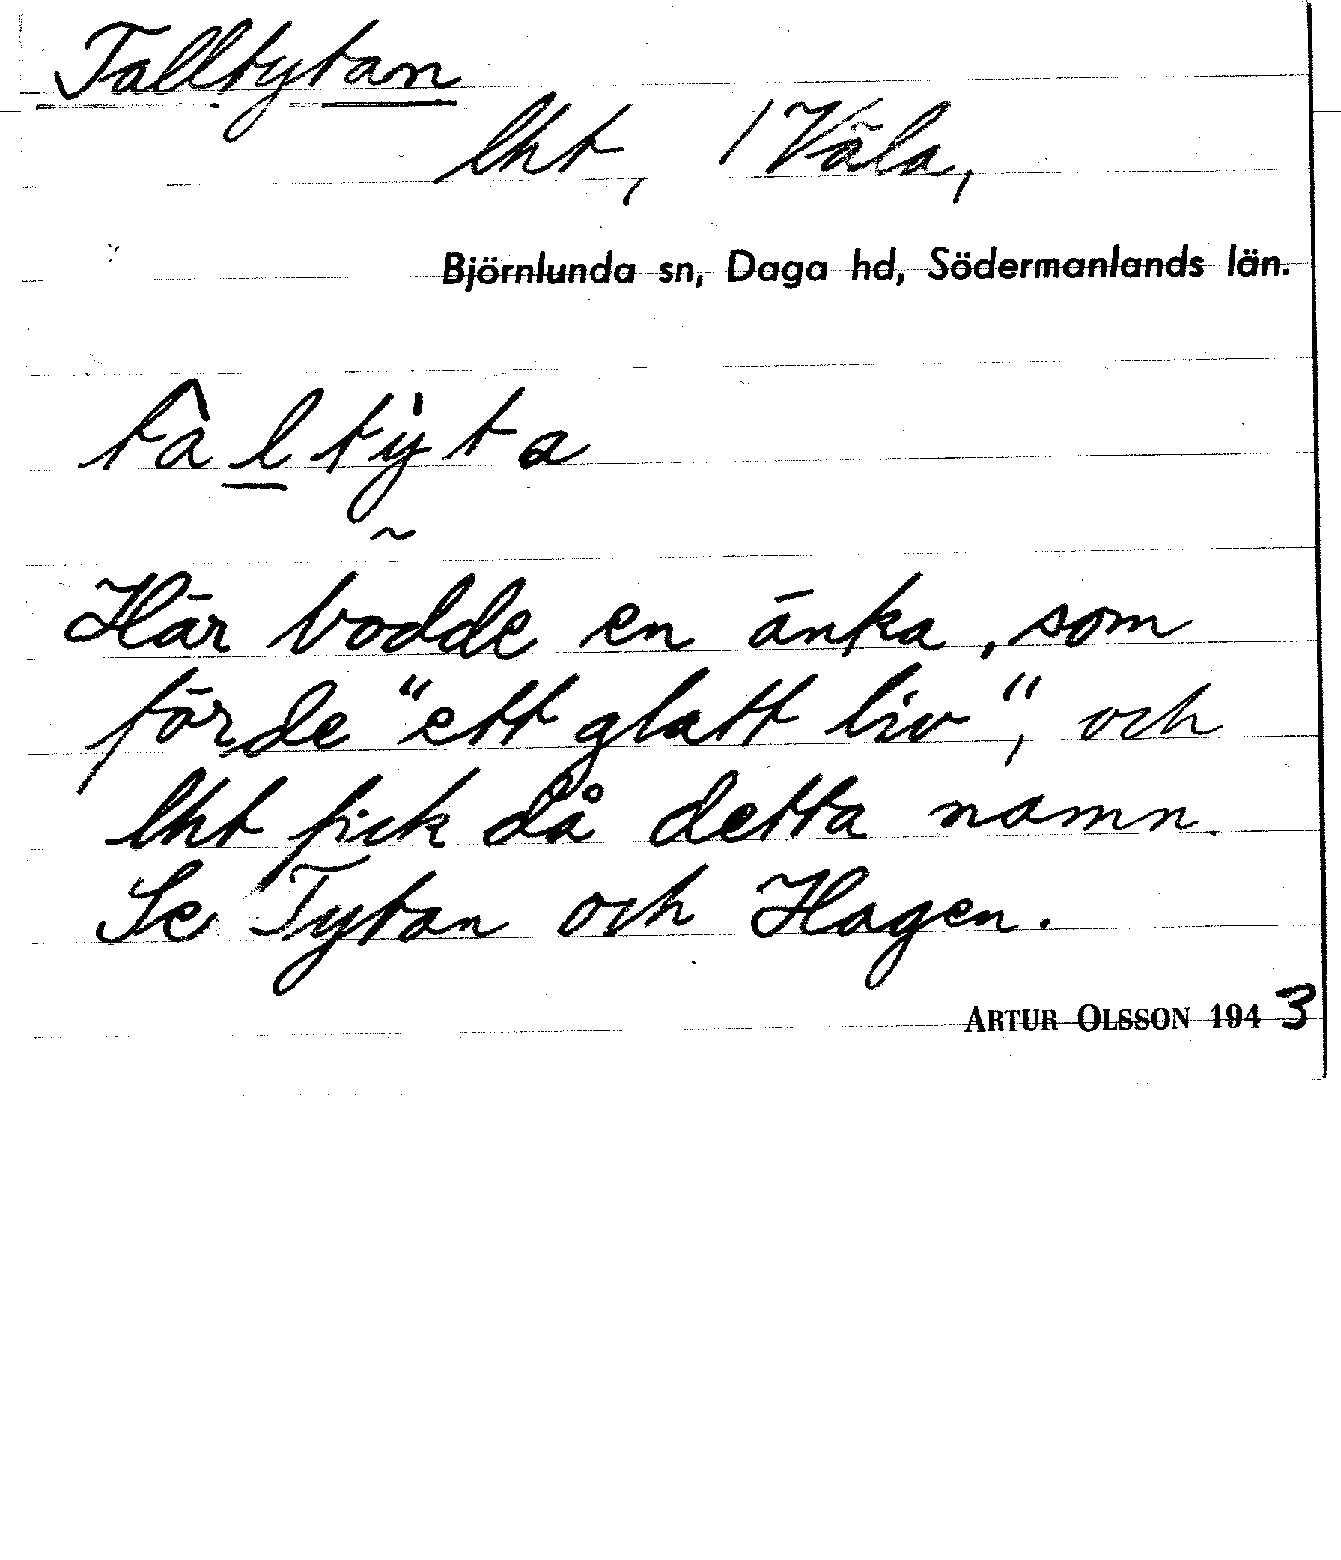 Talltytan
lht, / Väla,
Björnlunda sn, Daga hd, Södermanlands län.
tâltỳta
Här bodde en änka, som
förde "ett glatt liv", och
lht fick då detta namn.
Se Tytan och Hagen.
ARTUR OLSSON 1943